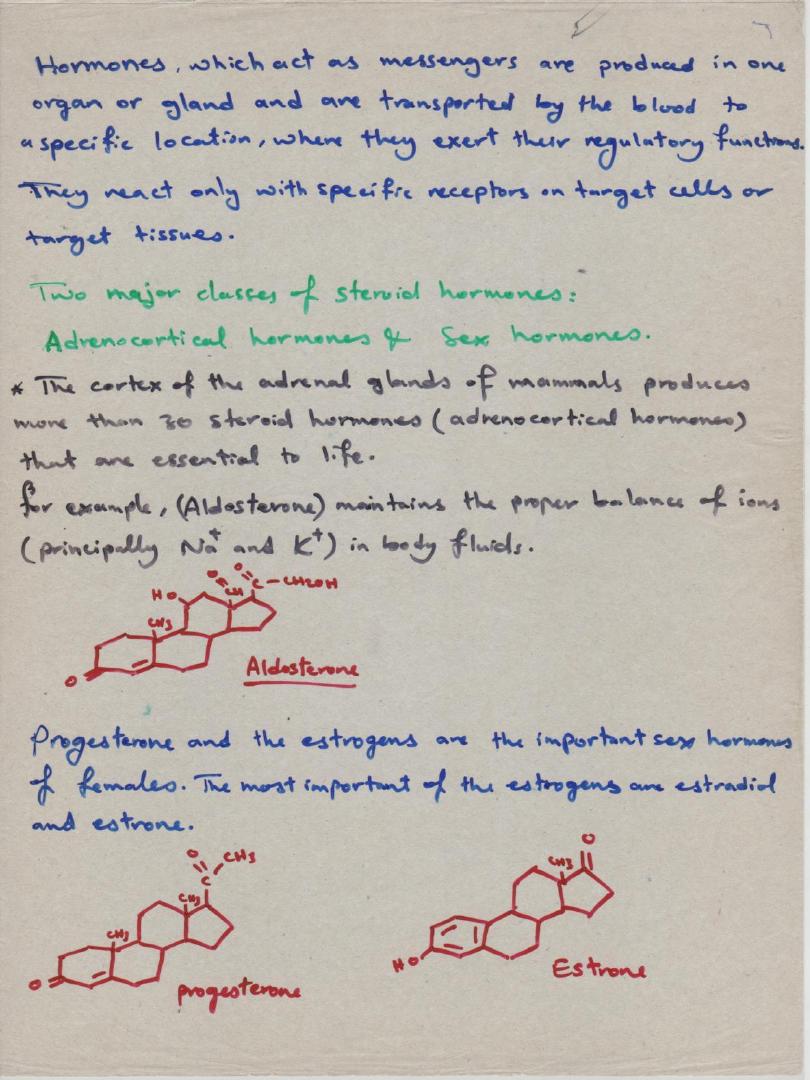 Hormones, which act as messengers are produced in one
organ or gland and are transported by the blood to
a specific location, where they exert their regulatory functions.
They react only with specific receptors on target cells or
target tissues.
Two major classes of steroid hormones:
Adrenocortical hormones & Sex hormones.
* The cortex of the adrenal glands of mammals produces
more than 30 steroid hormones (adrenocortical hormones)
that are essential to life.
for example, (Aldosterone) maintains the proper balance of ions
(principally Na+ and K+) in body fluids.
O O
HO CH C-CH2OH
CH3
O
Aldosterone
Progesterone and the estrogens are the important sex hormones
of females. The most important of the estrogens are estradiol
and estrone.
O CH3
C
CH3
CH3
O
progesterone
O
CH3
HO
Estrone